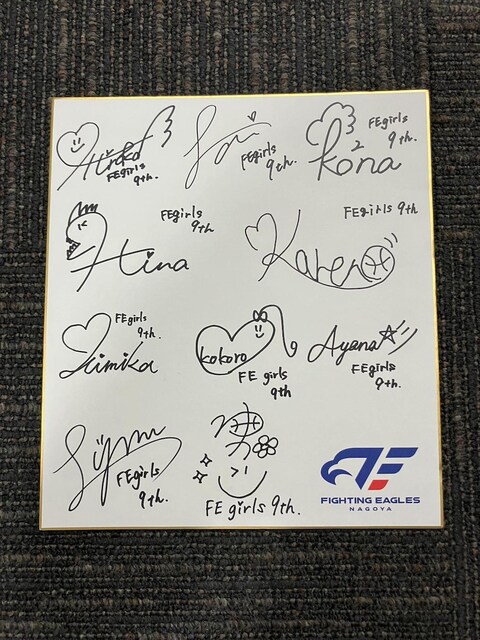 FEgirls
9th.
FEgirls
9th.
kona
2
FEgirls
9th.
Hina
FEgirls
9th
Karen
FEgirls 9th
FEgirls
9th.
kokoro
FE girls
9th
Ayana
FEgirls
9th.
FEgirls
9th.
FE girls 9th.
FE
FIGHTING EAGLES
NAGOYA